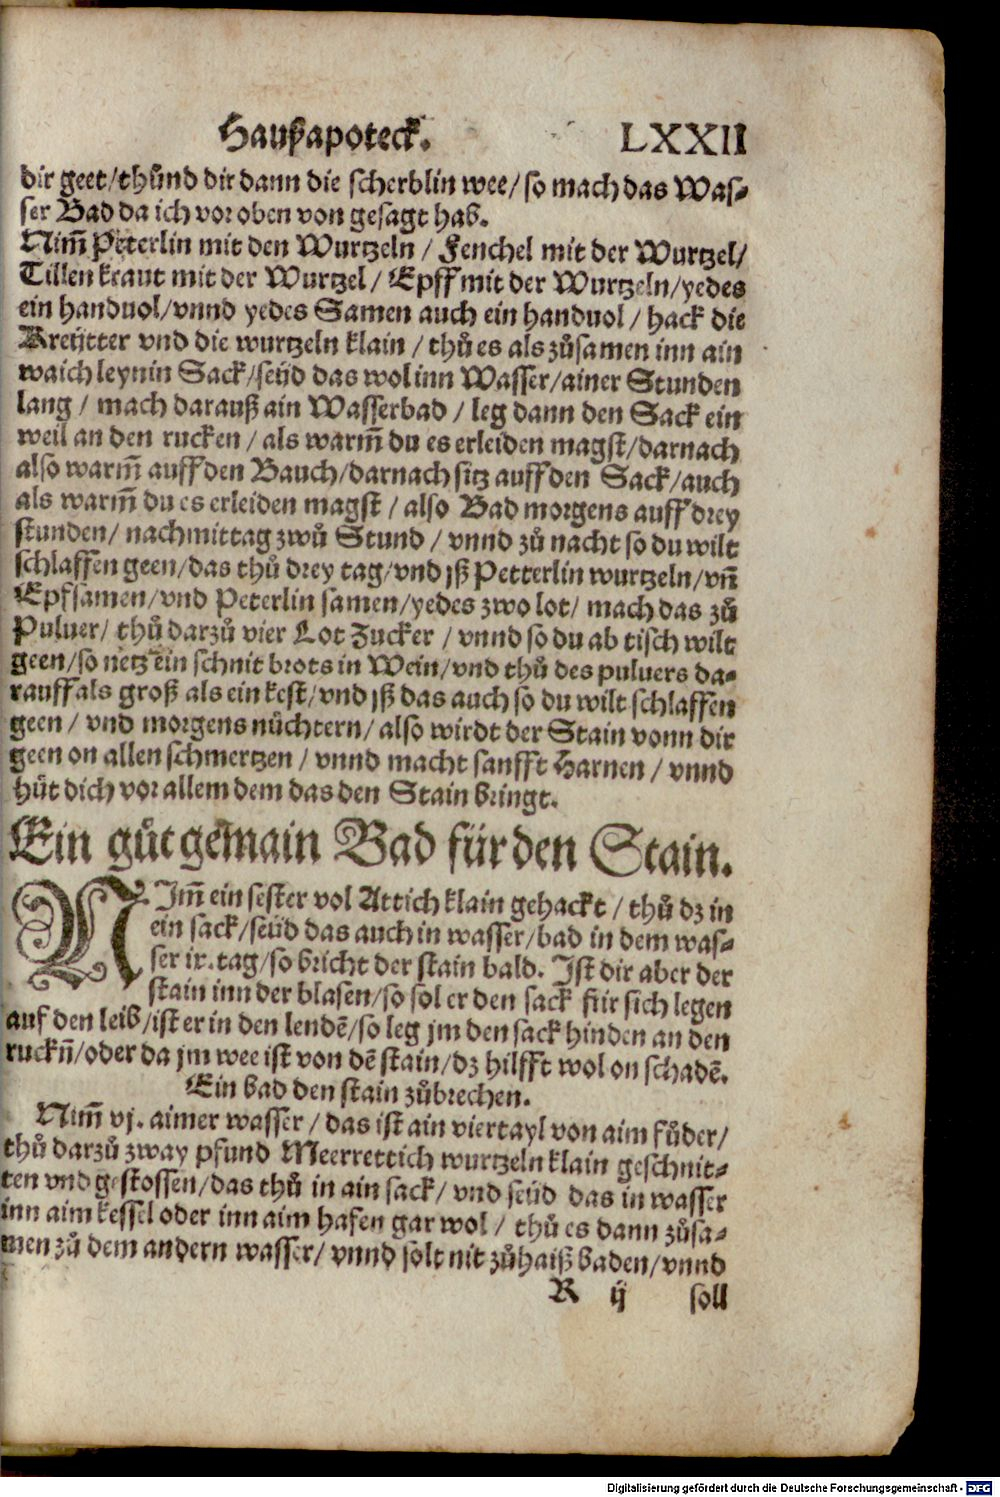 Haußapoteck. LXXII
dir geet/thůnd dir dann die scherblin wee/so mach das Was⸗
ser Bad da ich vor oben von gesagt hab.
Nim̃ Peterlin mit den Wurtzeln / Fenchel mit der Wurtzel/
Tillen kraut mit der Wurtzel / Epff mit der Wurtzeln/yedes
ein handuol/vnnd yedes Samen auch ein handuol / hack die
Kreütter vnd die wurtzeln klain / thů es als zůsamen inn ain
waich leynin Sack/seüd das wol inn Wasser/ainer Stunden
lang / mach darauß ain Wasserbad / leg dann den Sack ein
weil an den rucken / als warm̃ du es erleiden magst/darnach
also warm̃ auff den Bauch/darnach sitz auff den Sack/auch
als warm̃ du es erleiden magst / also Bad morgens auff drey
stunden/ nachmittag zwů Stund / vnnd zů nacht so du wilt
schlaffen geen/das thů drey tag/vnd jß Petterlin wurtzeln/vn̄
Epfsamen/vnd Peterlin samen/yedes zwo lot/ mach das zů
Puluer/ thů darzů vier Lot Zucker / vnnd so du ab tisch wilt
geen/so netz ein schnit brots in Wein/vnd thů des puluers da⸗
rauff als groß als ein kest/vnd jß das auch so du wilt schlaffen
geen / vnd morgens nüchtern/ also wirdt der Stain vonn dir
geen on allen schmertzen / vnnd macht sanfft Harnen / vnnd
hüt dich vor allem dem das den Stain bringt.
Ein gůt gemain Bad für den Stain.
NIm̃ ein sester vol Attich klain gehackt / thů dz in
ein sack/seüd das auch in wasser/bad in dem was⸗
ser ix. tag/so bricht der stain bald. Ist dir aber der
stain inn der blasen/so sol er den sack für sich legen
auf den leib/ist er in den lendē/so leg jm den sack hinden an den
ruckn̄/oder da jm wee ist von dē stain/dz hilfft wol on schadē.
Ein bad den stain zůbrechen.
Nim̃ vj. aimer wasser / das ist ain viertayl von aim fůder/
thů darzů zway pfund Meerrettich wurtzeln klain geschnit⸗
ten vnd gestossen/das thů in ain sack/ vnd seüd das in wasser
inn aim kessel oder inn aim hafen gar wol / thů es dann zůsa⸗
men zů dem andern wasser/ vnnd solt nit zůhaiß baden/vnnd
R ij soll
Digitalisierung gefördert durch die Deutsche Forschungsgemeinschaft - DFG